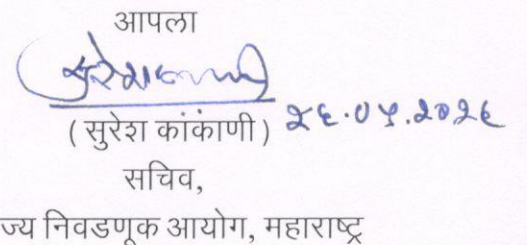 आपला
( सुरेश कांकांणी ) २६.०५.२०२६
सचिव,
ज्य निवडणूक आयोग, महाराष्ट्र